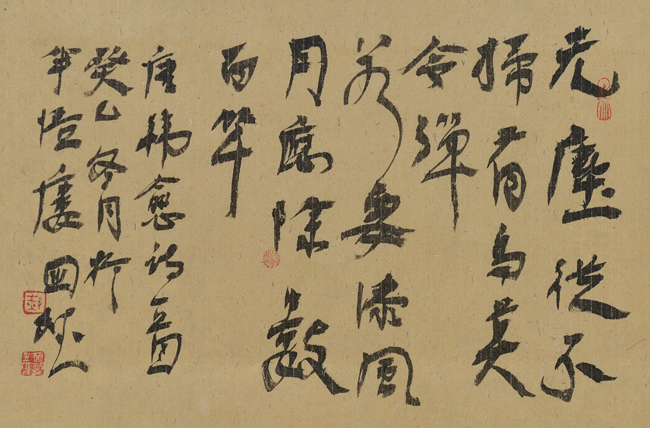 无塵從不
掃有鳥莫
令彈
若要添風
月應除數
百竿
唐韓愈詩一首
癸巳冬月於
悟廔國